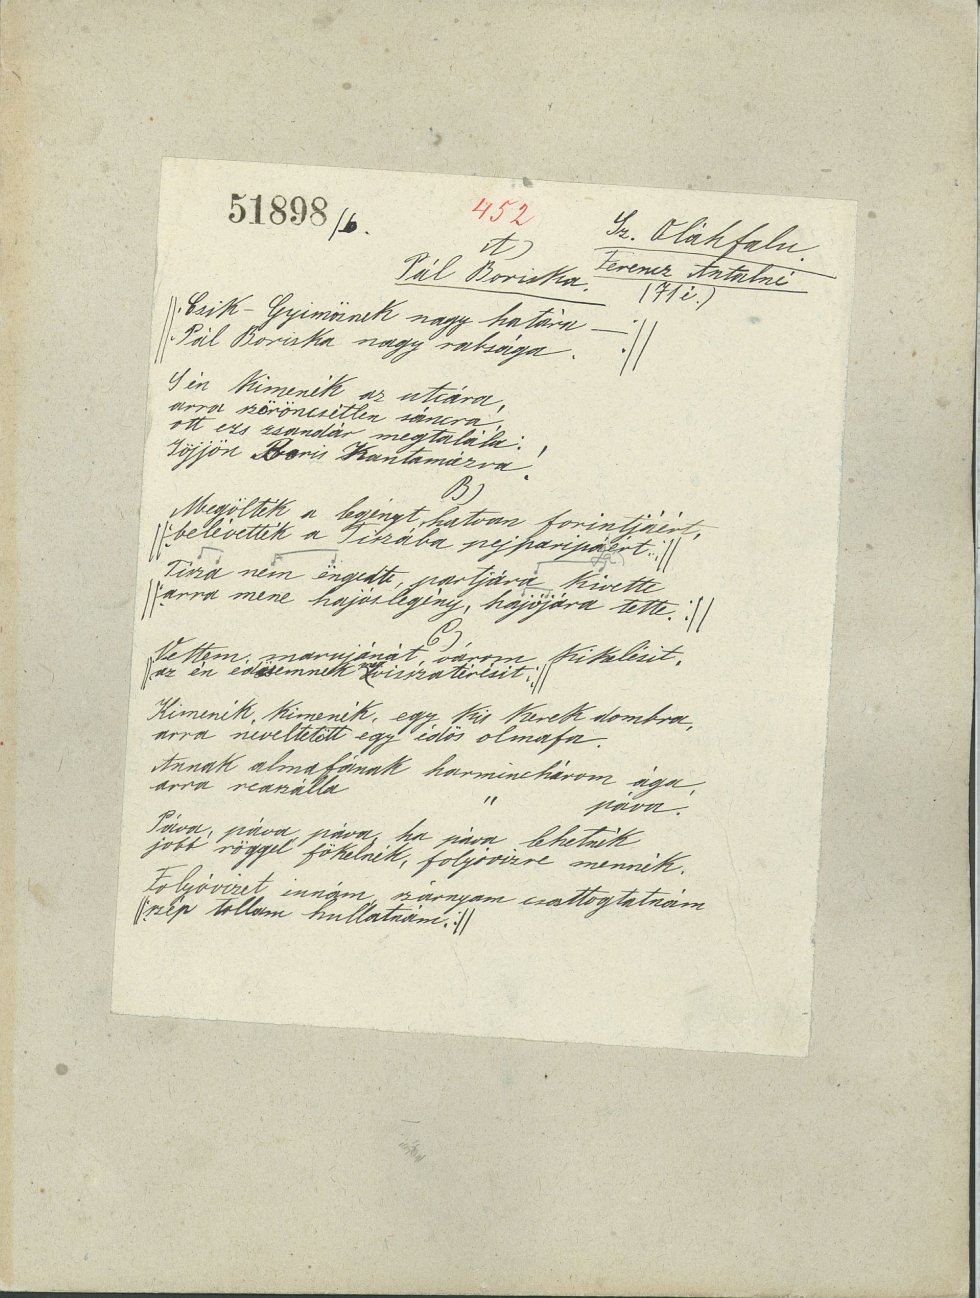 51898/b.
452
Sz. Oláhfalu.
A)
Ferencz Antalné
Pál Boriska.
(71 é.)
||: Csik-Gyimönek nagy határa —
Pál Boriska nagy rabsága. :||
S én kimenék az utcára,
arra szöröncsétlen sáncra,
ott egy zsandár megtalála:
Jöjjön Boris Kantamázra!
B)
Megölték a legényt hatvan forintjáért,
||: belévették a Tiszába pejparipáért. :||
Tisza nem éngedte, partjára kivette
||: arra mene hajóslegény, hajójára tette. :||
C)
Vettem marujánát, várom kikelésit,
||: az én édösemnek visszatérésit. :||
Kimenék, kimenék, egy kis kerek dombra,
arra neveltetött egy édös olmafa.
Annak almafának harminchárom ága,
arra reaszálla " páva.
Páva, páva, páva, ha páva lehetnék
jobb röggel fökelnék, folyóvizre mennék.
Folyóvizet innám, szárnyam csattogtatnám
||: szép tollam hullatnám. :||